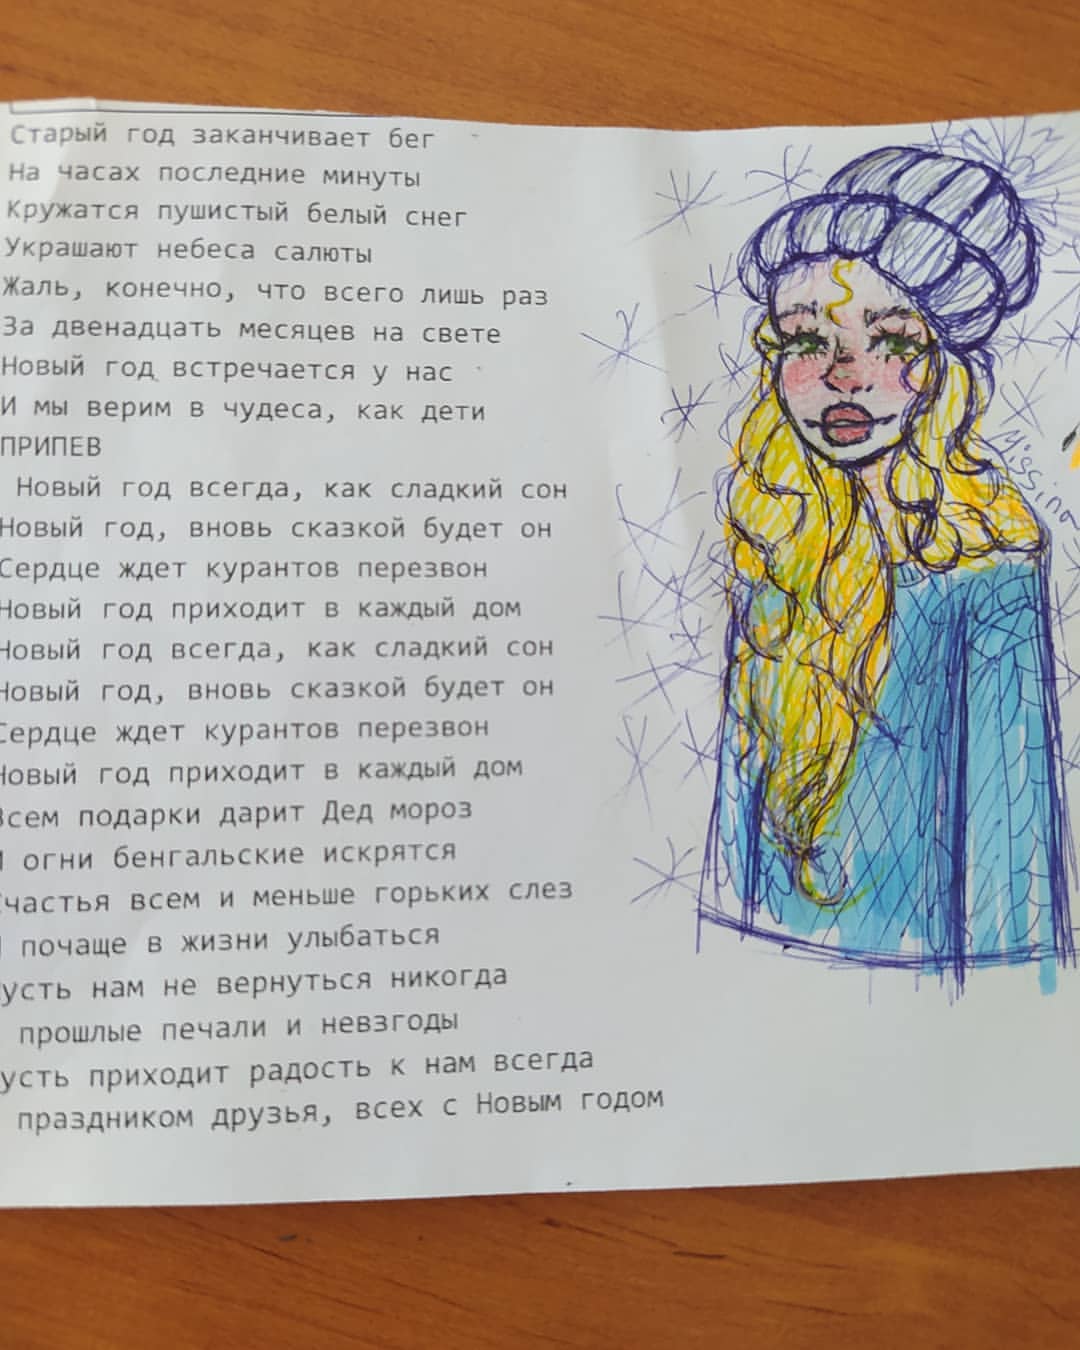 Старый год заканчивает бег
На часах последние минуты
Кружатся пушистый белый снег
Украшают небеса салюты
Жаль, конечно, что всего лишь раз
За двенадцать месяцев на свете
Новый год встречается у нас
И мы верим в чудеса, как дети
ПРИПЕВ
Новый год всегда, как сладкий сон
Новый год, вновь сказкой будет он
Сердце ждет курантов перезвон
Новый год приходит в каждый дом
Новый год всегда, как сладкий сон
Новый год, вновь сказкой будет он
Сердце ждет курантов перезвон
Новый год приходит в каждый дом
Всем подарки дарит Дед мороз
И огни бенгальские искрятся
Счастья всем и меньше горьких слез
И почаще в жизни улыбаться
усть нам не вернуться никогда
прошлые печали и невзгоды
усть приходит радость к нам всегда
праздником друзья, всех с Новым годом
Missina